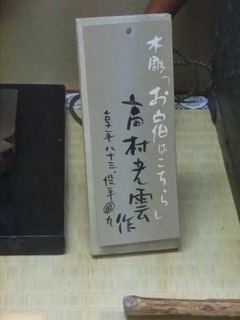 木彫「お宿はこちら」
高村光雲作
享年八十三、没年昭九